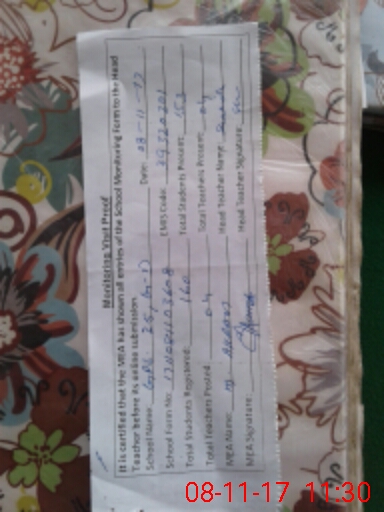 Monitoring Visit Proof
It is certified that the MEA has shown all entries of the School Monitoring Form to the Head
Teacher before its online submission.
School Name: GPS 25, Date: 08-11-17
School Form No: EMIS Code: 39520201
Total Students Registered: 160 Total Students Present: 153
Total Teachers Posted: 04 Total Teachers Present: 04
MEA Name: M. Head Teacher Name:
MEA Signature: Head Teacher Signature:
08-11-17 11:30